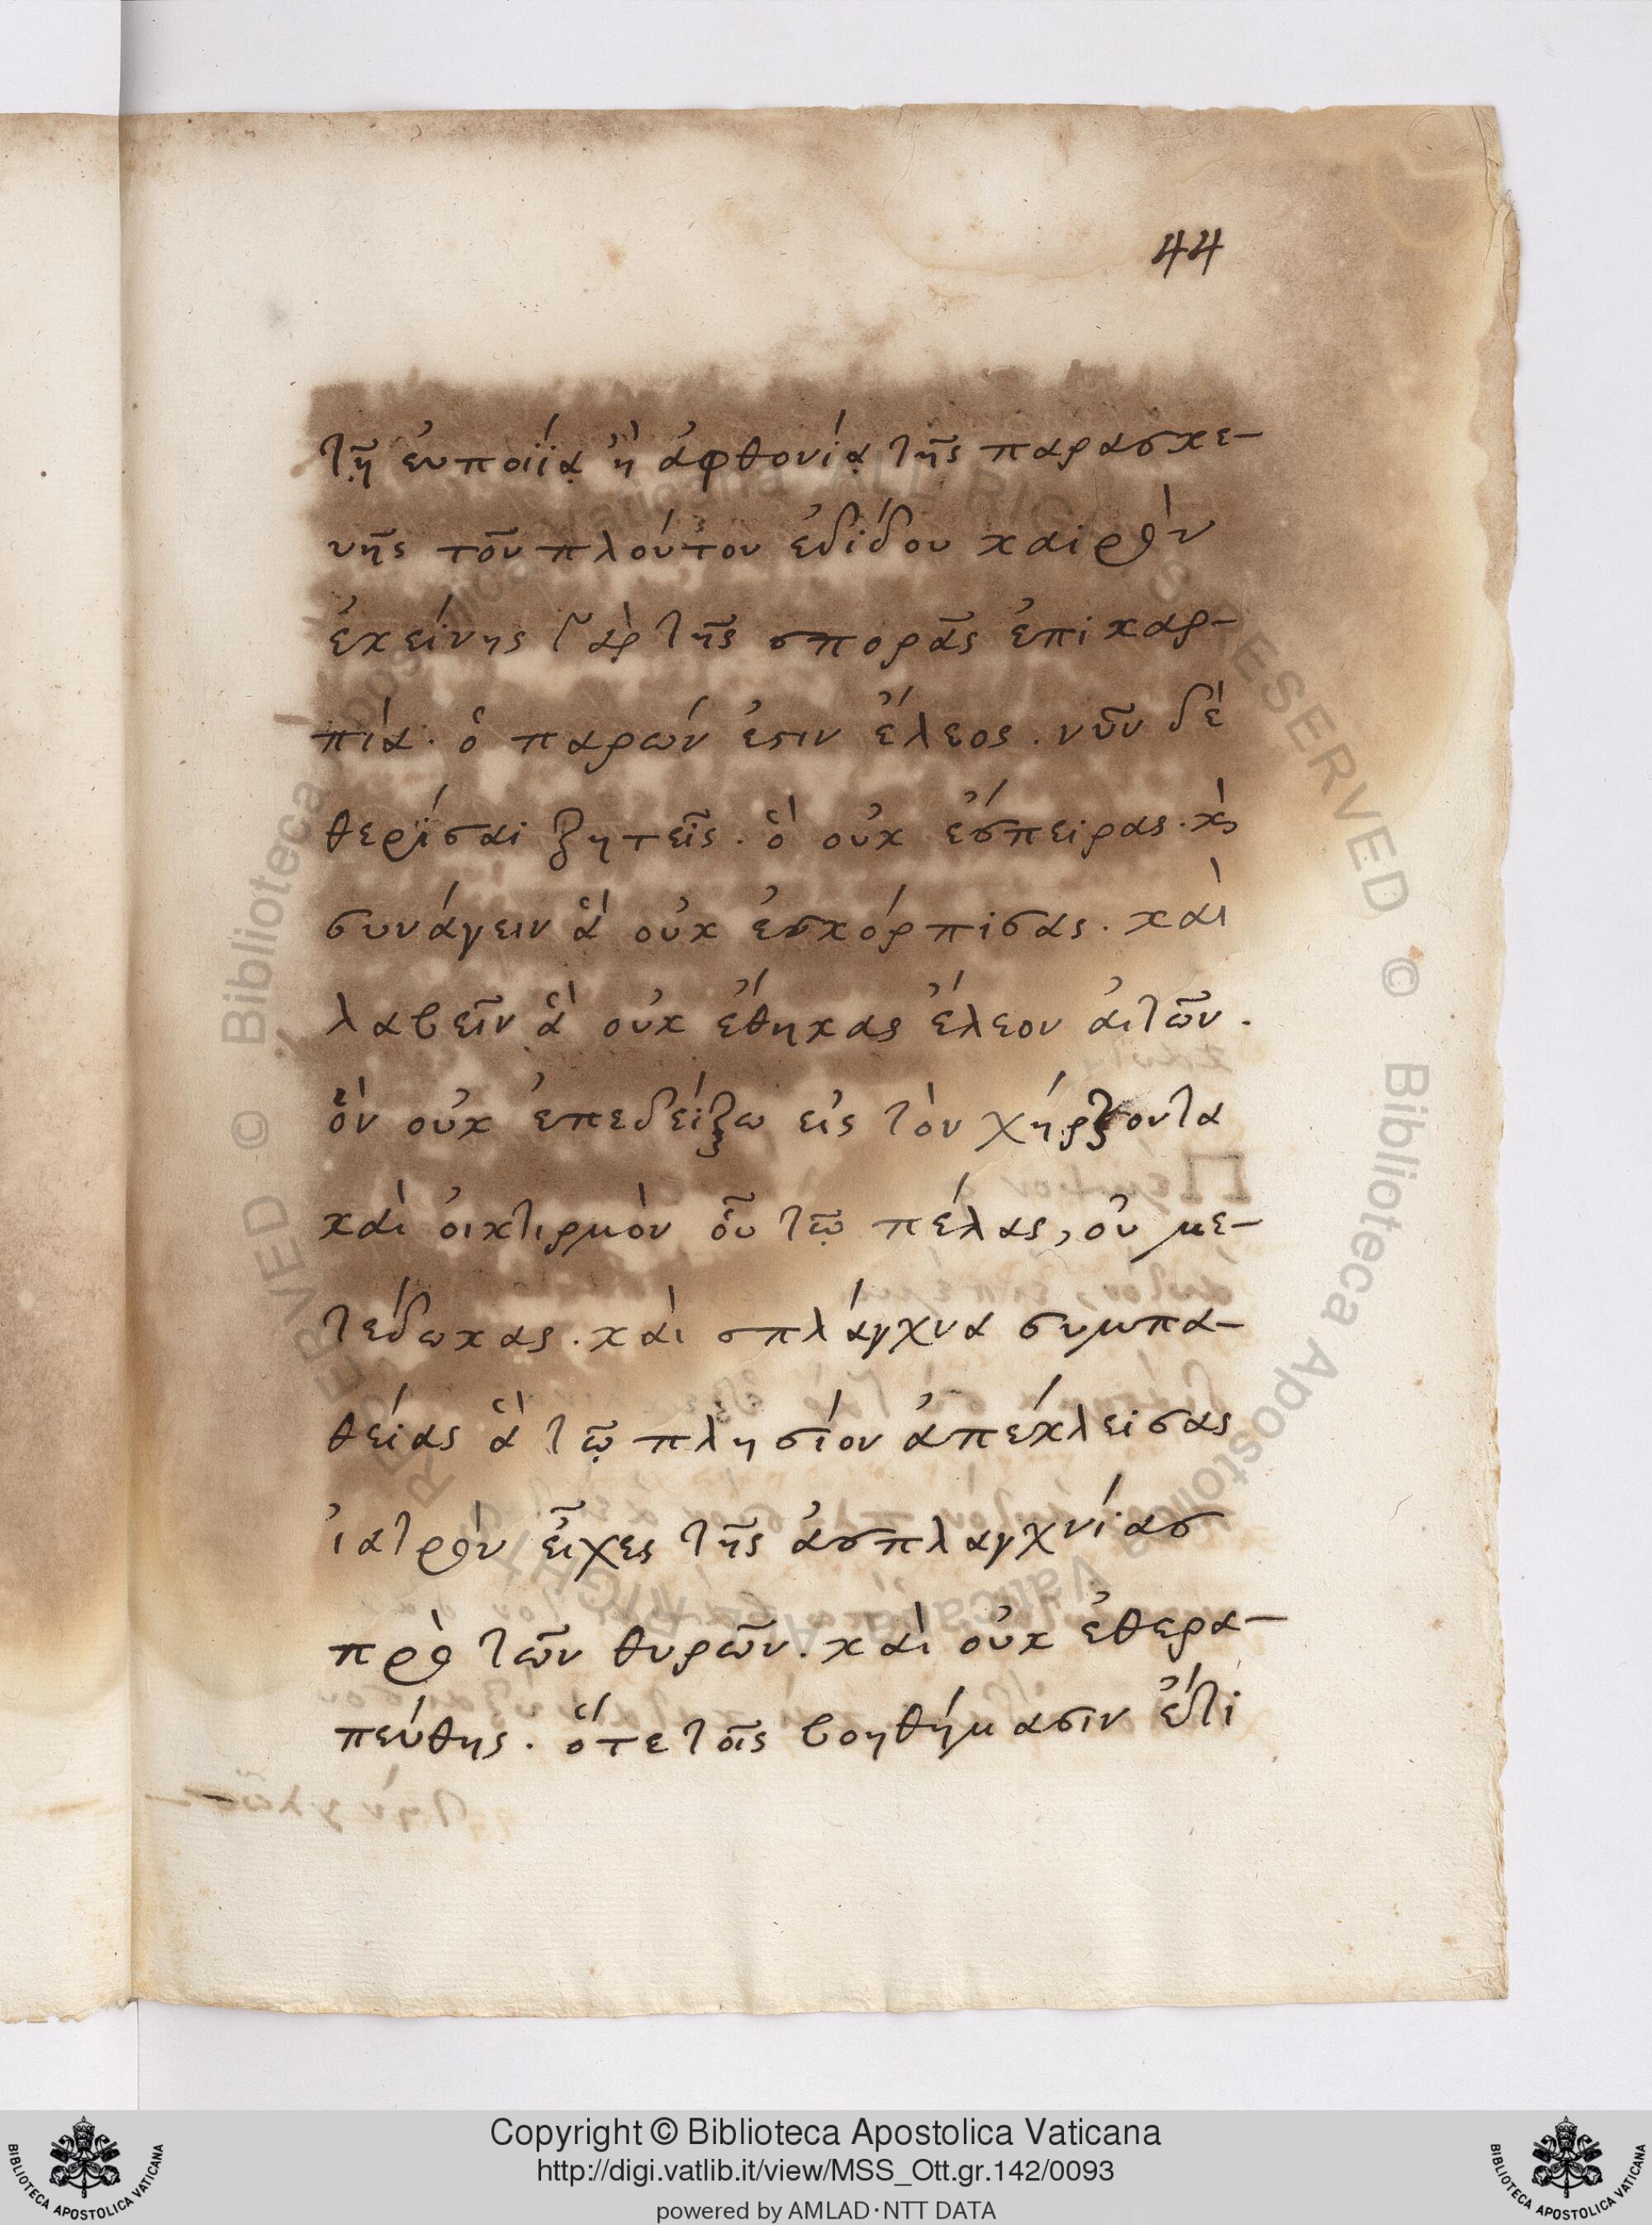 44
τῇ εὐποιΐᾳ ἢ ἀφθονίᾳ τῆς παρασκε-
υῆς τοῦ πλούτου ἐδίδου καιρὸν
ἐκείνης γὰρ τῆς σπορᾶς ἐπικαρ-
πία· ὁ παρών ἐστιν ἔλεος. νῦν δὲ
θερίσαι ζητεῖς. ὃ οὐκ ἔσπειρας. κ̀
συνάγειν ἃ οὐκ ἐσκόρπισας. καὶ
λαβεῖν ἃ οὐκ ἔθηκας ἔλεον αἰτῶν.
ὃν οὐκ ἐπεδείξω εἰς τὸν χρῄζοντα
καὶ οἰκτιρμὸν οὗ τῷ πέλας, οὐ με-
τέδωκας. καὶ σπλάγχνα συμπα-
θείας ἃ τῷ πλησίον ἀπέκλεισας
ἰατρὸν εἶχες τῆς ἀσπλαγχνίασ
πρὸ τῶν θυρῶν. καὶ οὐκ ἐθερα-
πεύθης. ὅτε τοῖς βοηθήμασιν ἔτι
Copyright © Biblioteca Apostolica Vaticana
http://digi.vatlib.it/view/MSS_Ott.gr.142/0093
powered by AMLAD·NTT DATA
BIBLIOTECA APOSTOLICA VATICANA
BIBLIOTECA APOSTOLICA VATICANA
© Biblioteca Apostolica Vaticana ALL RIGHTS RESERVED
© Biblioteca Apostolica Vaticana ALL RIGHTS RESERVED